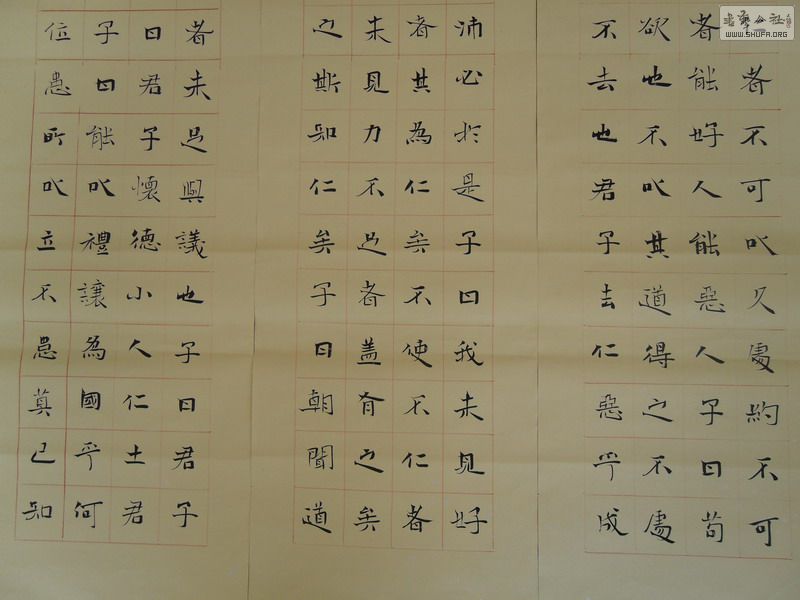 者不可以久處約不可
者能好人能惡人子曰苟
欲也不以其道得之不處
不去也君子去仁惡乎成
沛必於是子曰我未見好
者其為仁矣不使不仁者
未見力不足者蓋有之矣
之斯知仁矣子曰朝聞道
者未足與議也子曰君子
曰君子懷德小人仁土君
子曰能以禮讓為國乎何
位患所以立不患莫己知
書藝公社
WWW.SHUFA.ORG